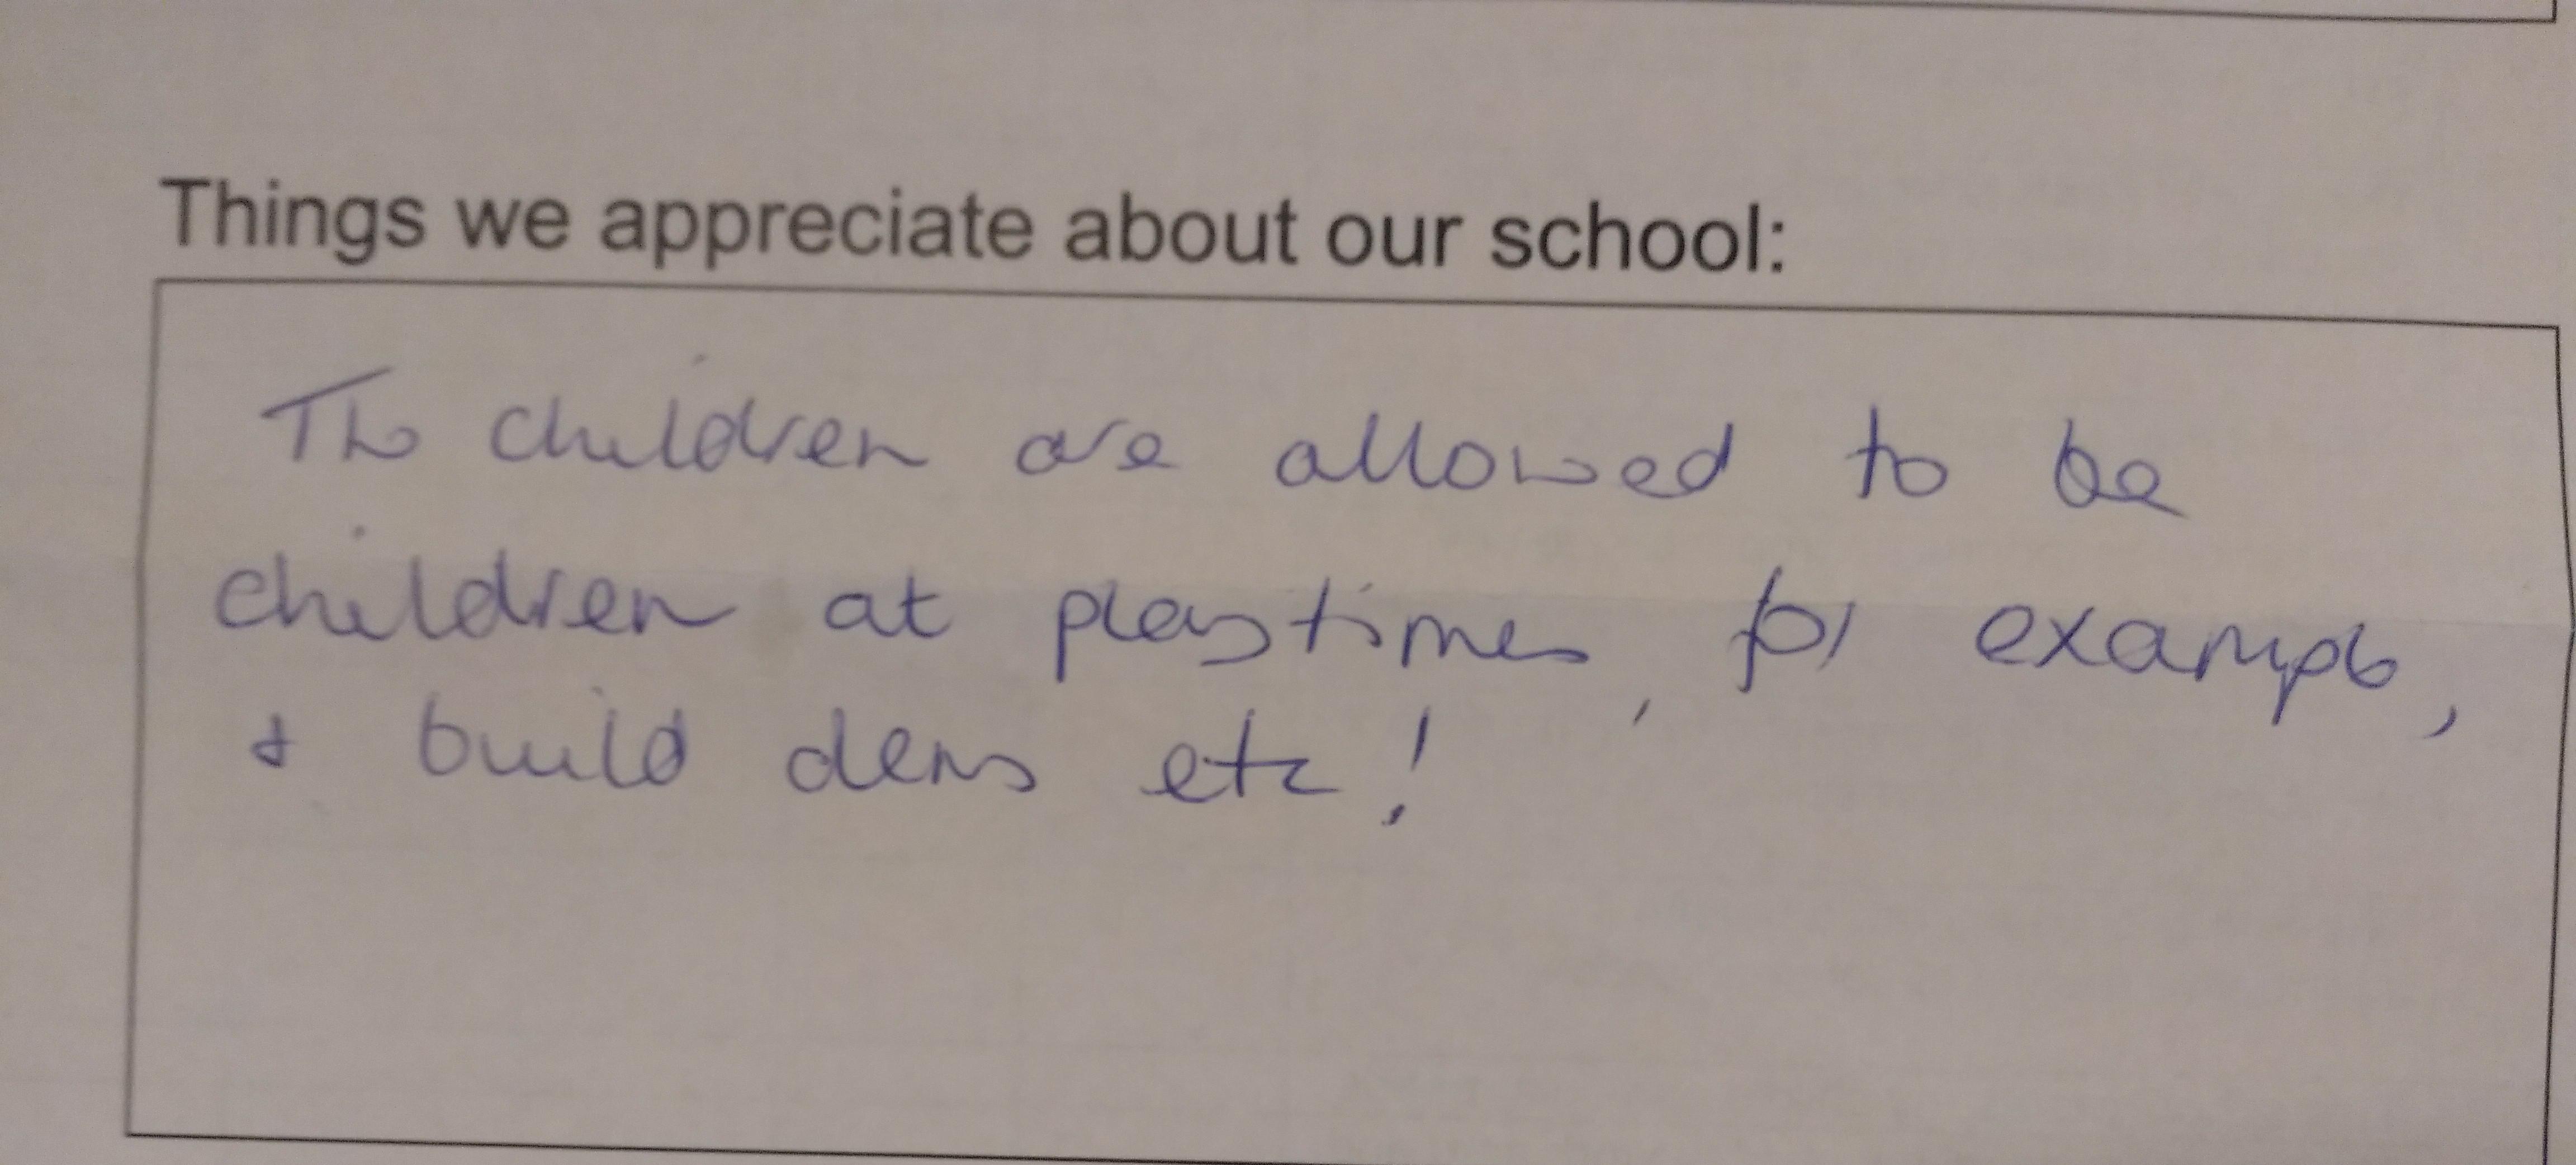 Things we appreciate about our school:
The children are allowed to be
children at playtimes, for example,
& build dens etc!